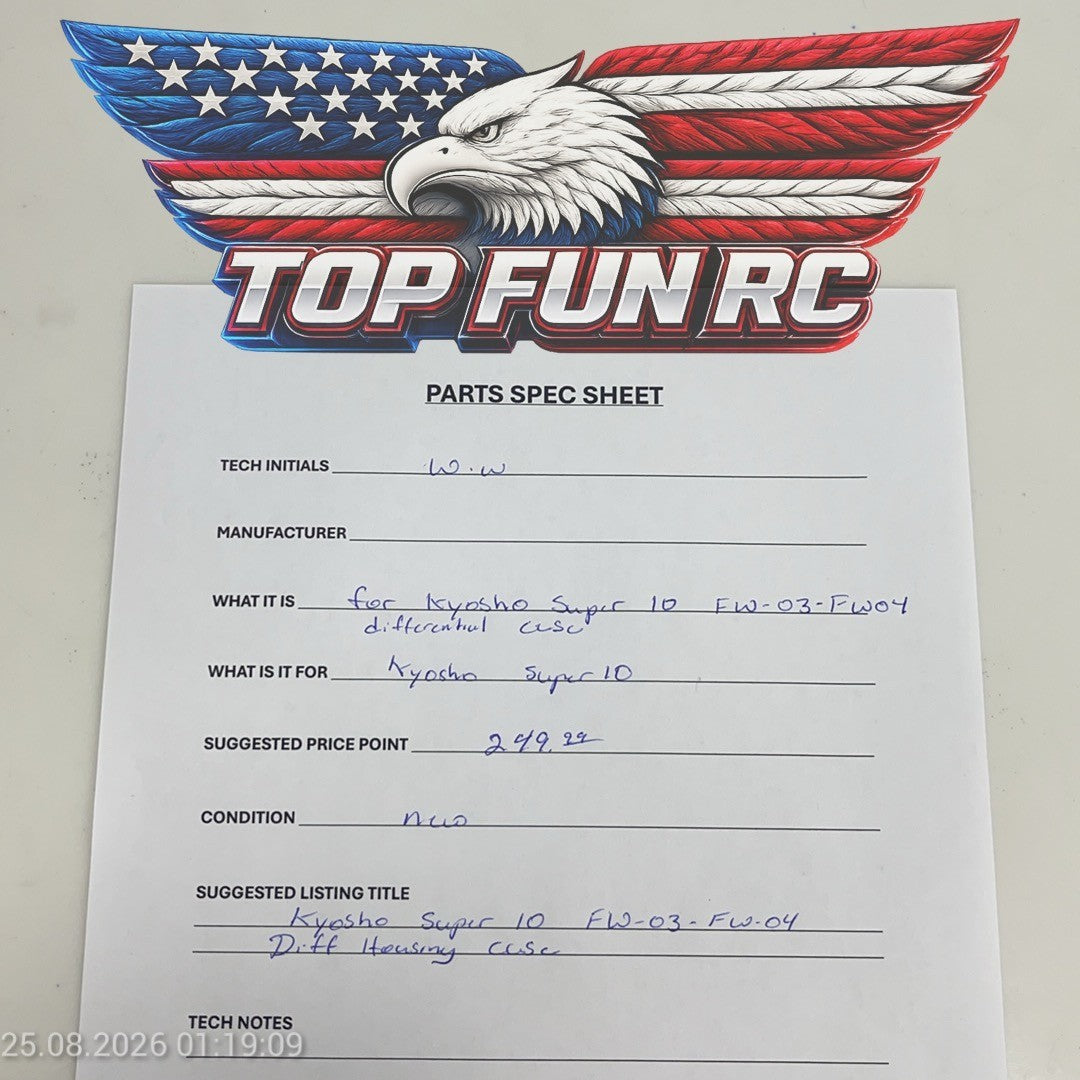 TOP FUN RC
PARTS SPEC SHEET
TECH INITIALS W.W
MANUFACTURER
WHAT IT IS for Kyosho Super 10 FW-03-FW04
differential case
WHAT IS IT FOR Kyosho Super 10
SUGGESTED PRICE POINT 249.99
CONDITION new
SUGGESTED LISTING TITLE
Kyosho Super 10 FW-03-FW-04
Diff Housing case
TECH NOTES
25.08.2026 01:19:09